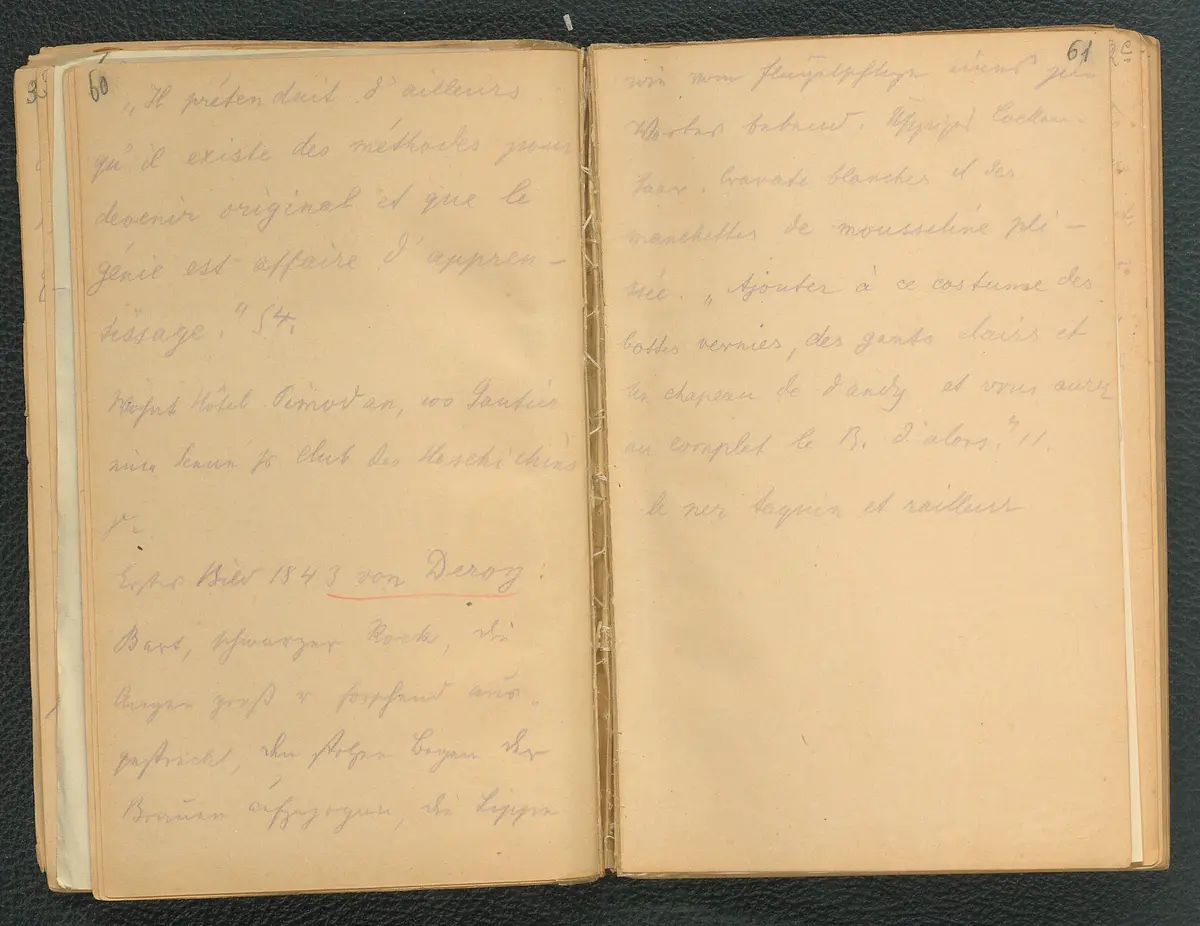 60
„Il prétendait d'ailleurs
qu'il existe des méthodes pour
devenir original et que le
génie est affaire d'appren-
tissage." 54.
Wohnt Hôtel Pimodan, wo Gautier
Club des Haschichins
Erstes Bild 1843 von Deroy:
Bart, schwarzer Rock, die
Augen groß u forschend aus-
gestreckt, den stolzen Bogen der
Brauen aufgezogen, die Lippen
61
wie vom eines
Wortes bebend. Üppiges Locken-
haar. Cravate blanche et des
manchettes de mousseline plis-
sée. „Ajouter à ce costume des
bottes vernies, des gants clairs et
un chapeau de dandy et vous aurez
au complet le B. d'alors." 11.
le nez taquin et railleur